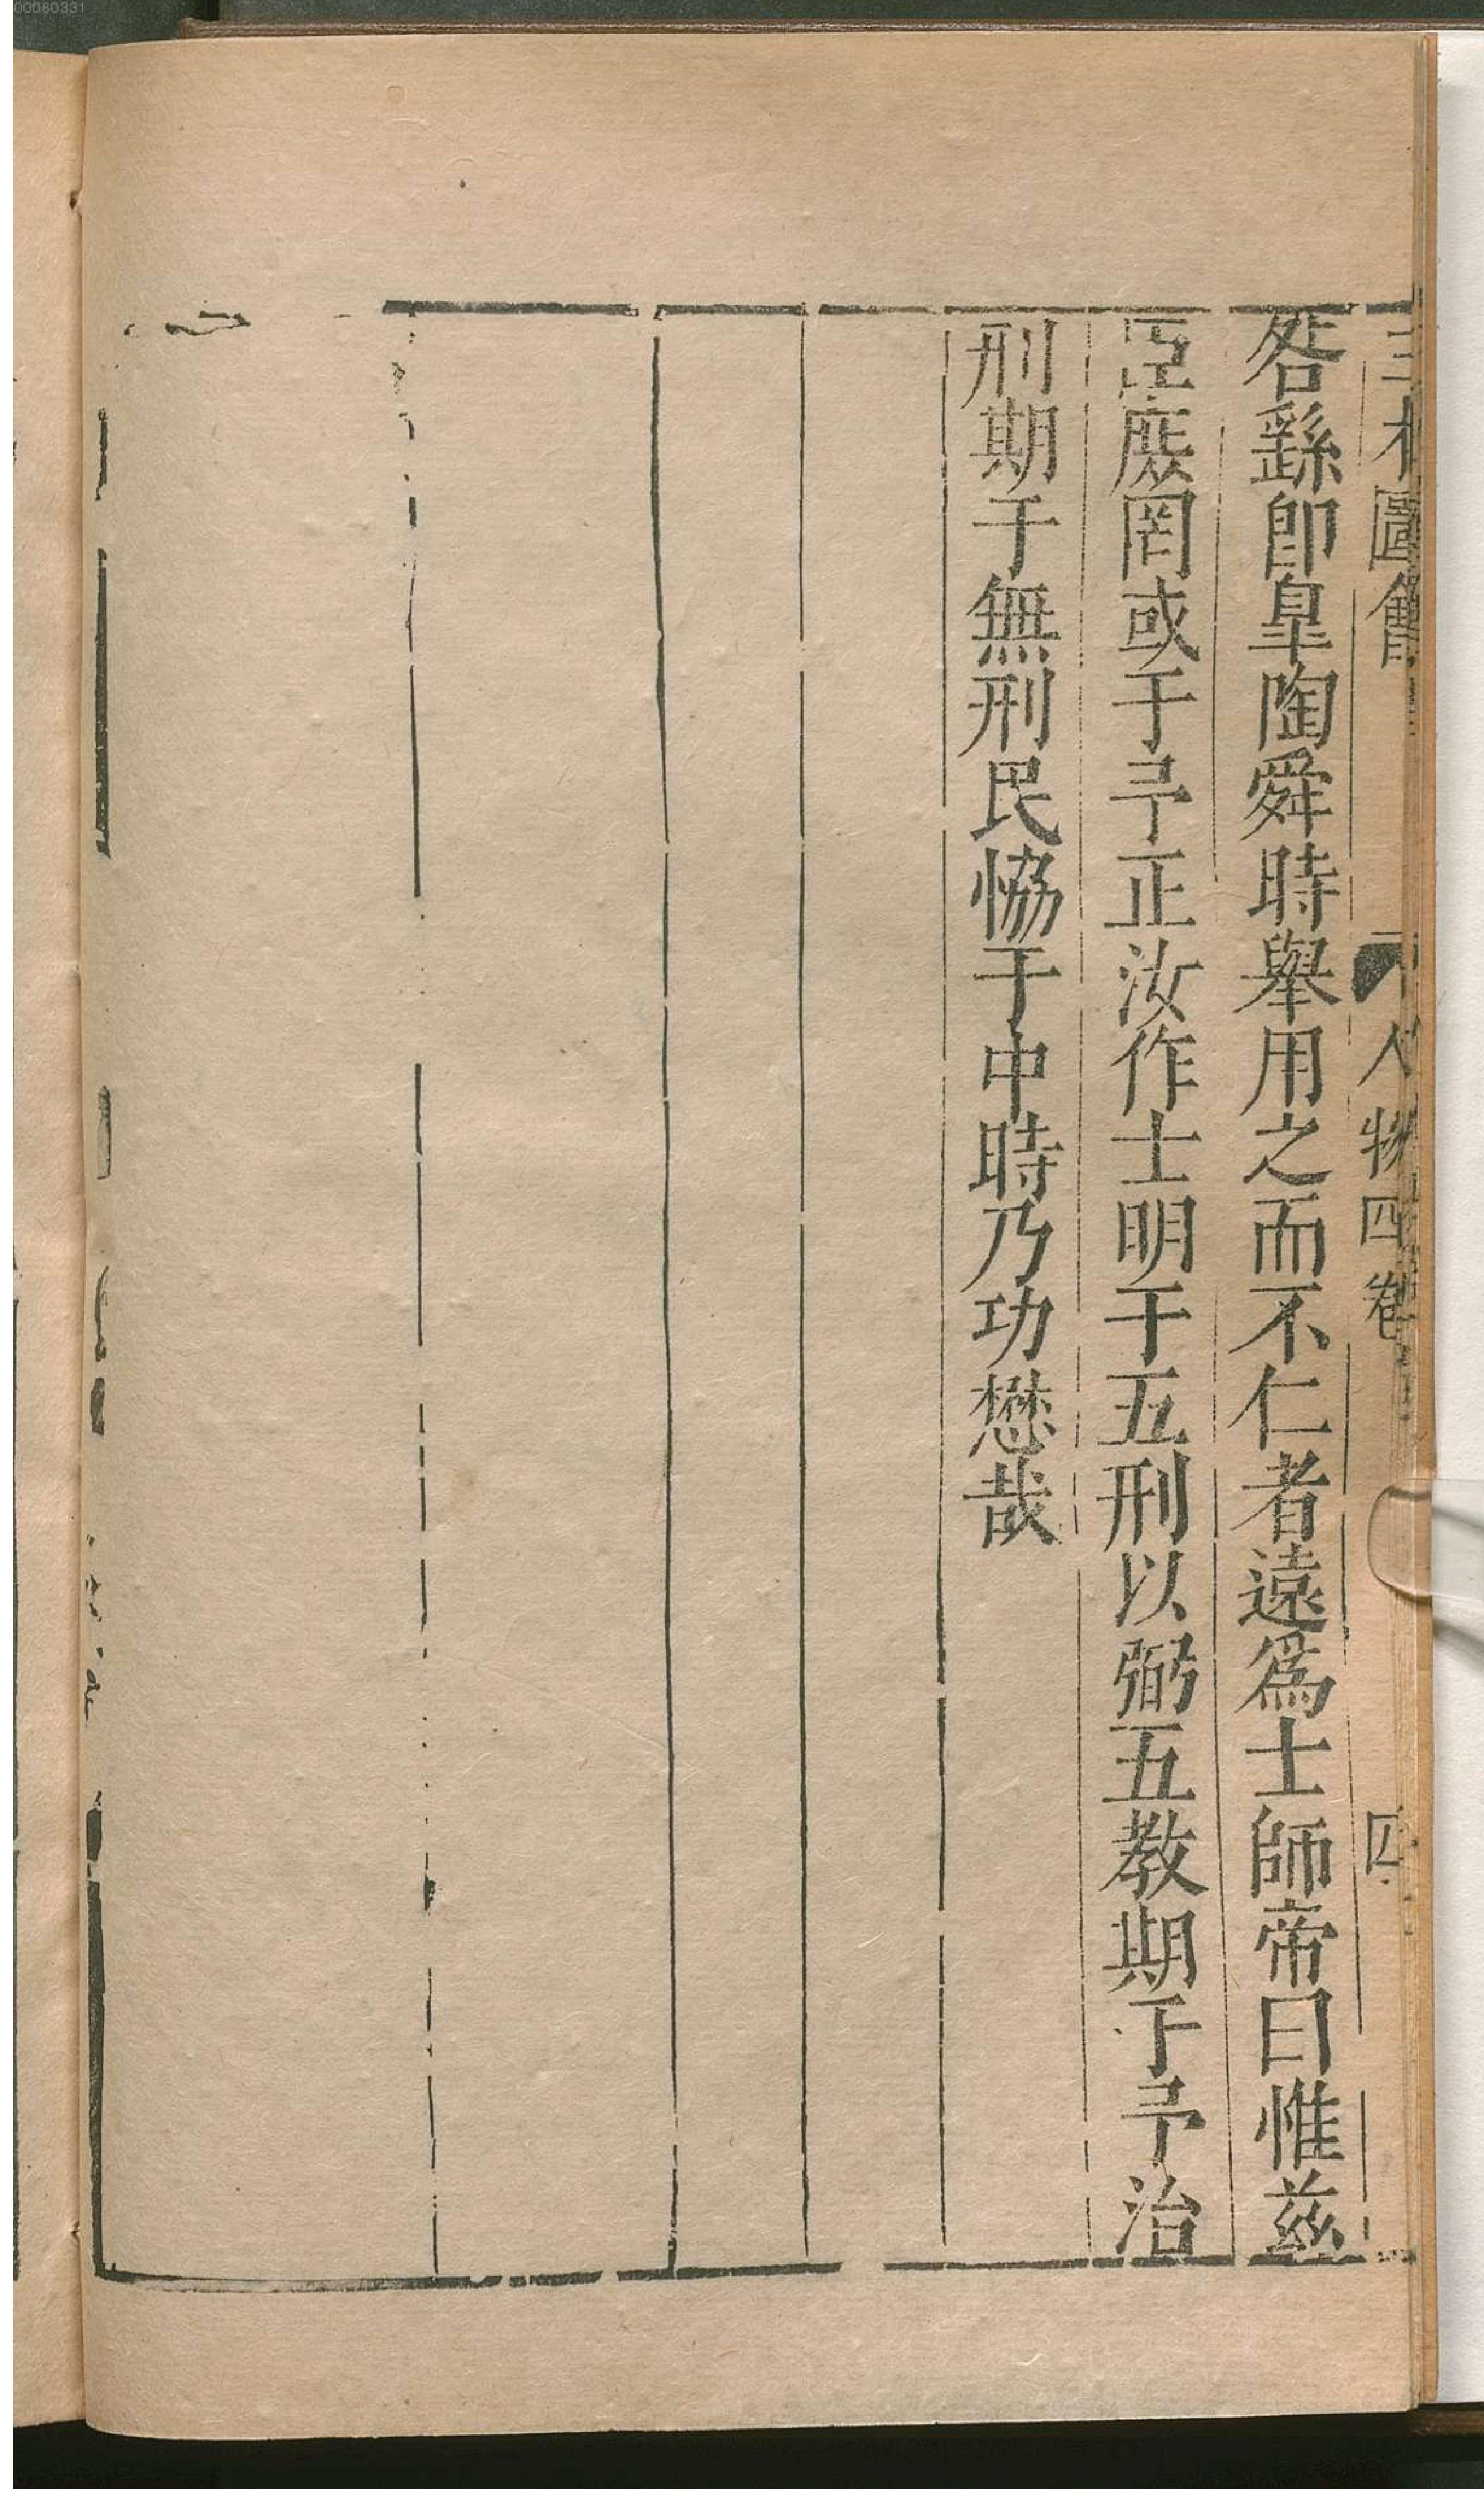 三才圖會 人物四卷 四
咎繇卽皐陶舜時舉用之而不仁者遠爲士師帝曰惟茲
臣庶罔或于予正汝作士明于五刑以弼五教期于予治
刑期于無刑民協于中時乃功懋哉
00060331